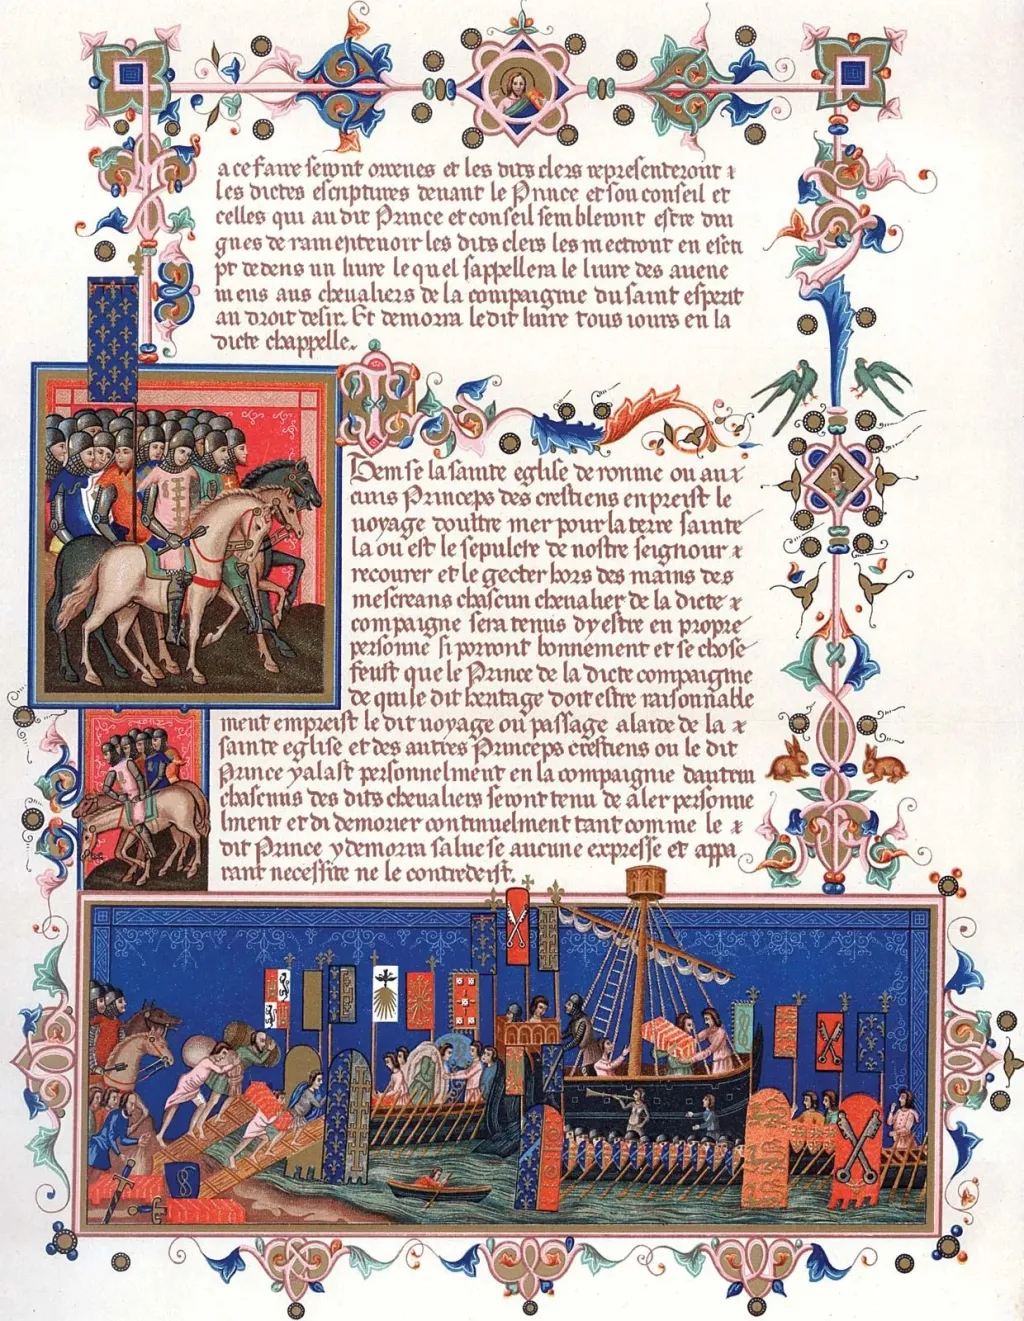 a ce faire seront ordenes et les dits clers representeront
les dictes escriptures devant le Prince et son conseil et
celles qui au dit Prince et conseil sembleront estre din
gnes de ramentevoir les dits clers les mectront en escri
pt dedens un livre le quel sappellera le livre des avene
mens aus chevaliers de la compaignie du saint esperit
au droit desir. Et demorra le dit livre tous iours en la
dicte chappelle.
Item se la sainte eglise de romme ou au
cuns Princeps des crestiens enpreist le
voyage doultre mer pour la terre sainte
la ou est le sepulcre de nostre seignour
recourer et le gecter hors des mains des
mescreans chascun chevalier de la dicte
compaigne sera tenus dy estre en propre
personne si porront bonnement et se chose
feust que le Prince de la dicte compaignie
de qui le dit heritage doit estre raisonnable
ment empreist le dit voyage ou passage a laide de la
sainte eglise et des autres Princeps crestiens ou le dit
Prince y alast personnelment en la compaignie dautrui
chascuns des dits chevaliers seront tenu de aler personne
lment et di demorer continuelment tant comme le
dit Prince y demorra salve se aucune expresse et appa
rant necessite ne le contredeist.